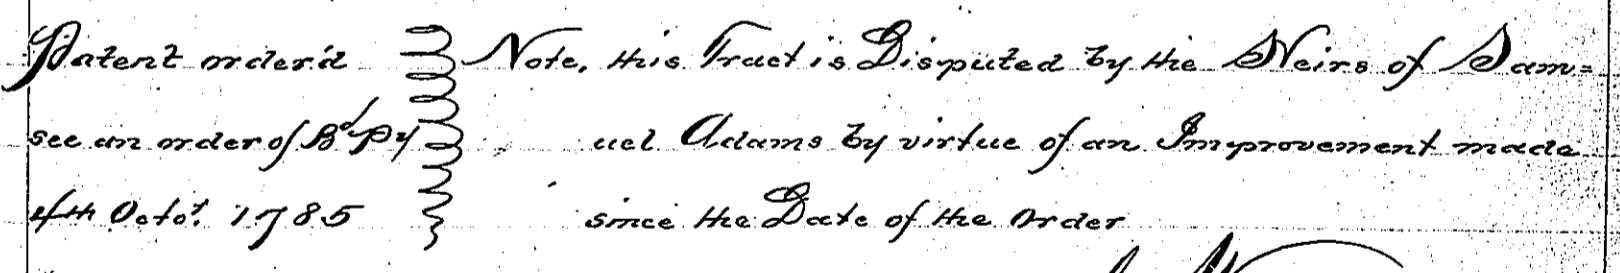 Patent order'd
see an order of Bd Py
4th Octor. 1785
Note, this Tract is Disputed by the Heirs of Sam=
uel Adams by virtue of an Improvement made
since the Date of the order